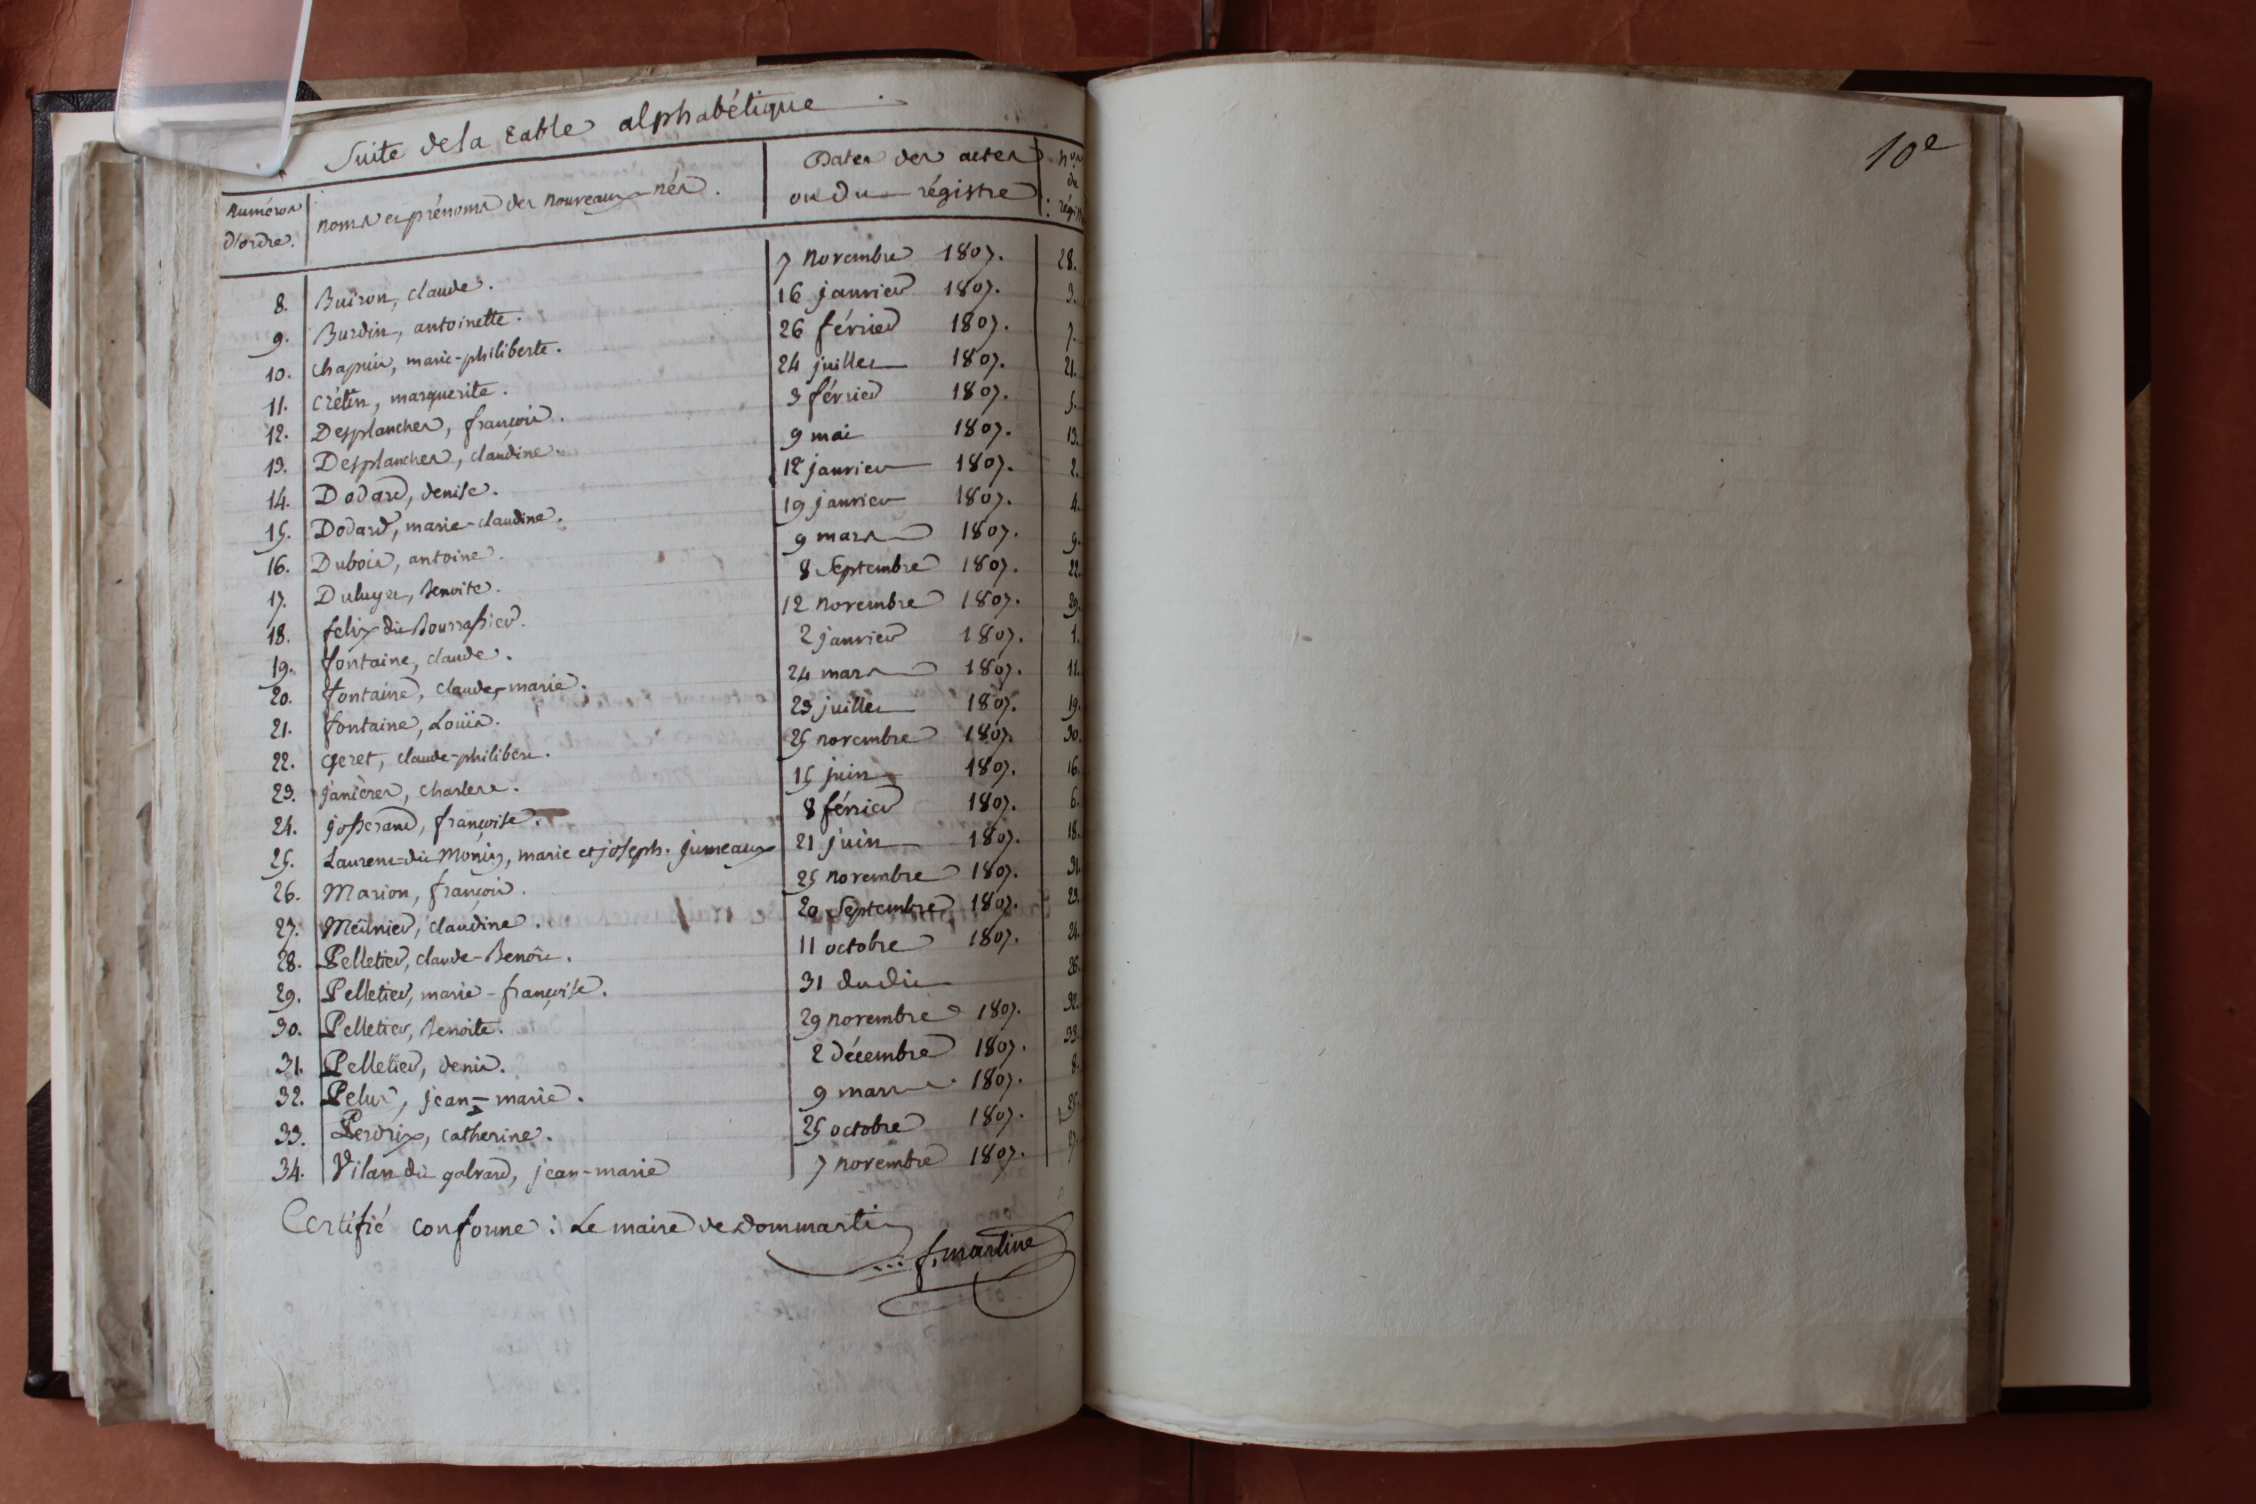 Suite de la table alphabétique
numéros d'ordre. noms et prénoms des nouveaux-nés. Dates des actes ou du régistre nos du régistre
8. Buiron, claude. 7 novembre 1807. 28.
9. Burdin, antoinette. 16 janvier 1807. 3.
10. chapuis, marie-philiberte. 26 février 1807. 7.
11. crétin, marguerite. 24 juillet 1807. 21.
12. Desplanches, françois. 3 février 1807. 5.
13. Desplanches, claudine. 9 mai 1807. 13.
14. Dodard, denise. 12 janvier 1807. 2.
15. Dodard, marie-claudine. 19 janvier 1807. 4.
16. Dubois, antoine. 9 mars 1807. 9.
17. Benoite. 8 Septembre 1807. 22.
18. felix dit Bourrassier. 12 novembre 1807. 29.
19. fontaine, claude. 2 janvier 1807. 1.
20. fontaine, claude-marie. 24 mars 1807. 11.
21. fontaine, Louis. 23 juillet 1807. 19.
22. geret, claude-philibert. 25 novembre 1807. 30.
23. janières, charles. 15 juin 1807. 16.
24. josserand, françoise. 8 février 1807. 6.
25. Laurent dit Monin, marie et joseph. jumeaux 21 juin 1807. 18.
26. Marion, françois. 25 novembre 1807. 31.
27. Meûnier, claudine. 20 Septembre 1807. 23.
28. Pelletier, claude-Benoît. 11 octobre 1807. 24.
29. Pelletier, marie-françoise. 31 dudit 26.
30. Pelletier, Benoite. 29 novembre 1807. 32.
31. Pelletier, denis. 2 décembre 1807. 33.
32. Pelus, jean-marie. 9 mars 1807. 8.
33. Perdrix, catherine. 25 octobre 1807. 25.
34. Vilan dit galvard, jean-marie 7 novembre 1807. 27.
Certifié conforme : Le maire de dommartin
f. martine
10e